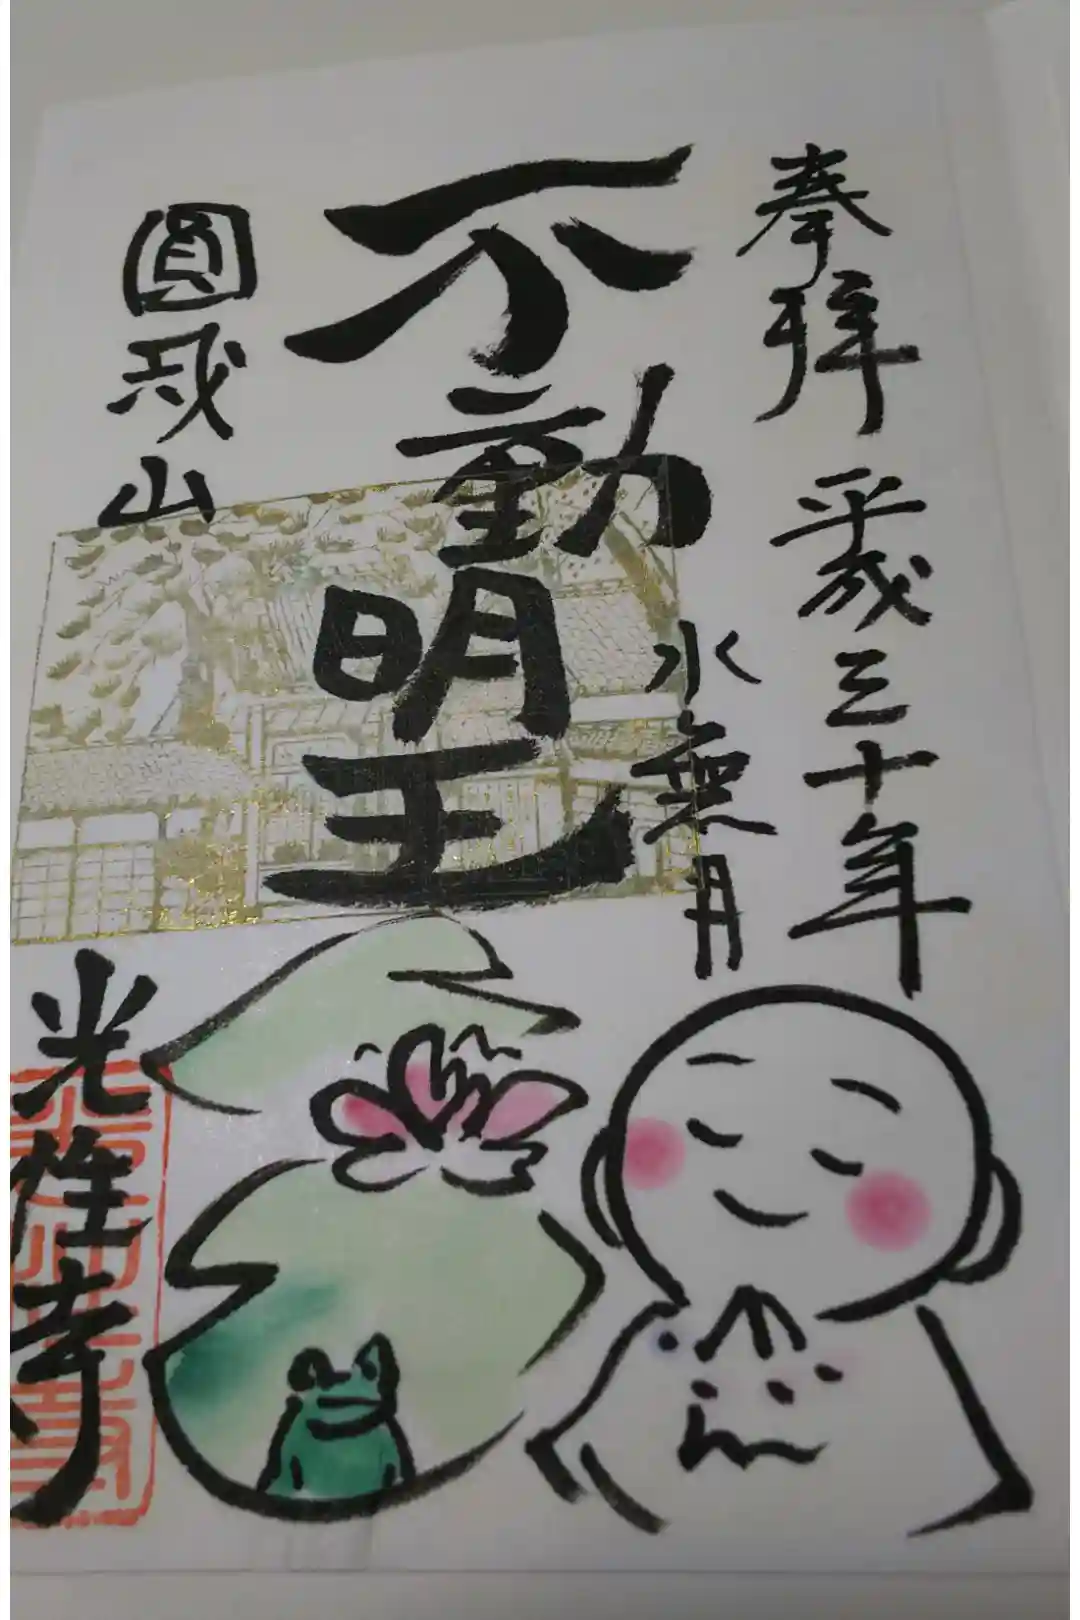 奉拝 平成三十年
水無月
不動明王
圓 山
光 寺